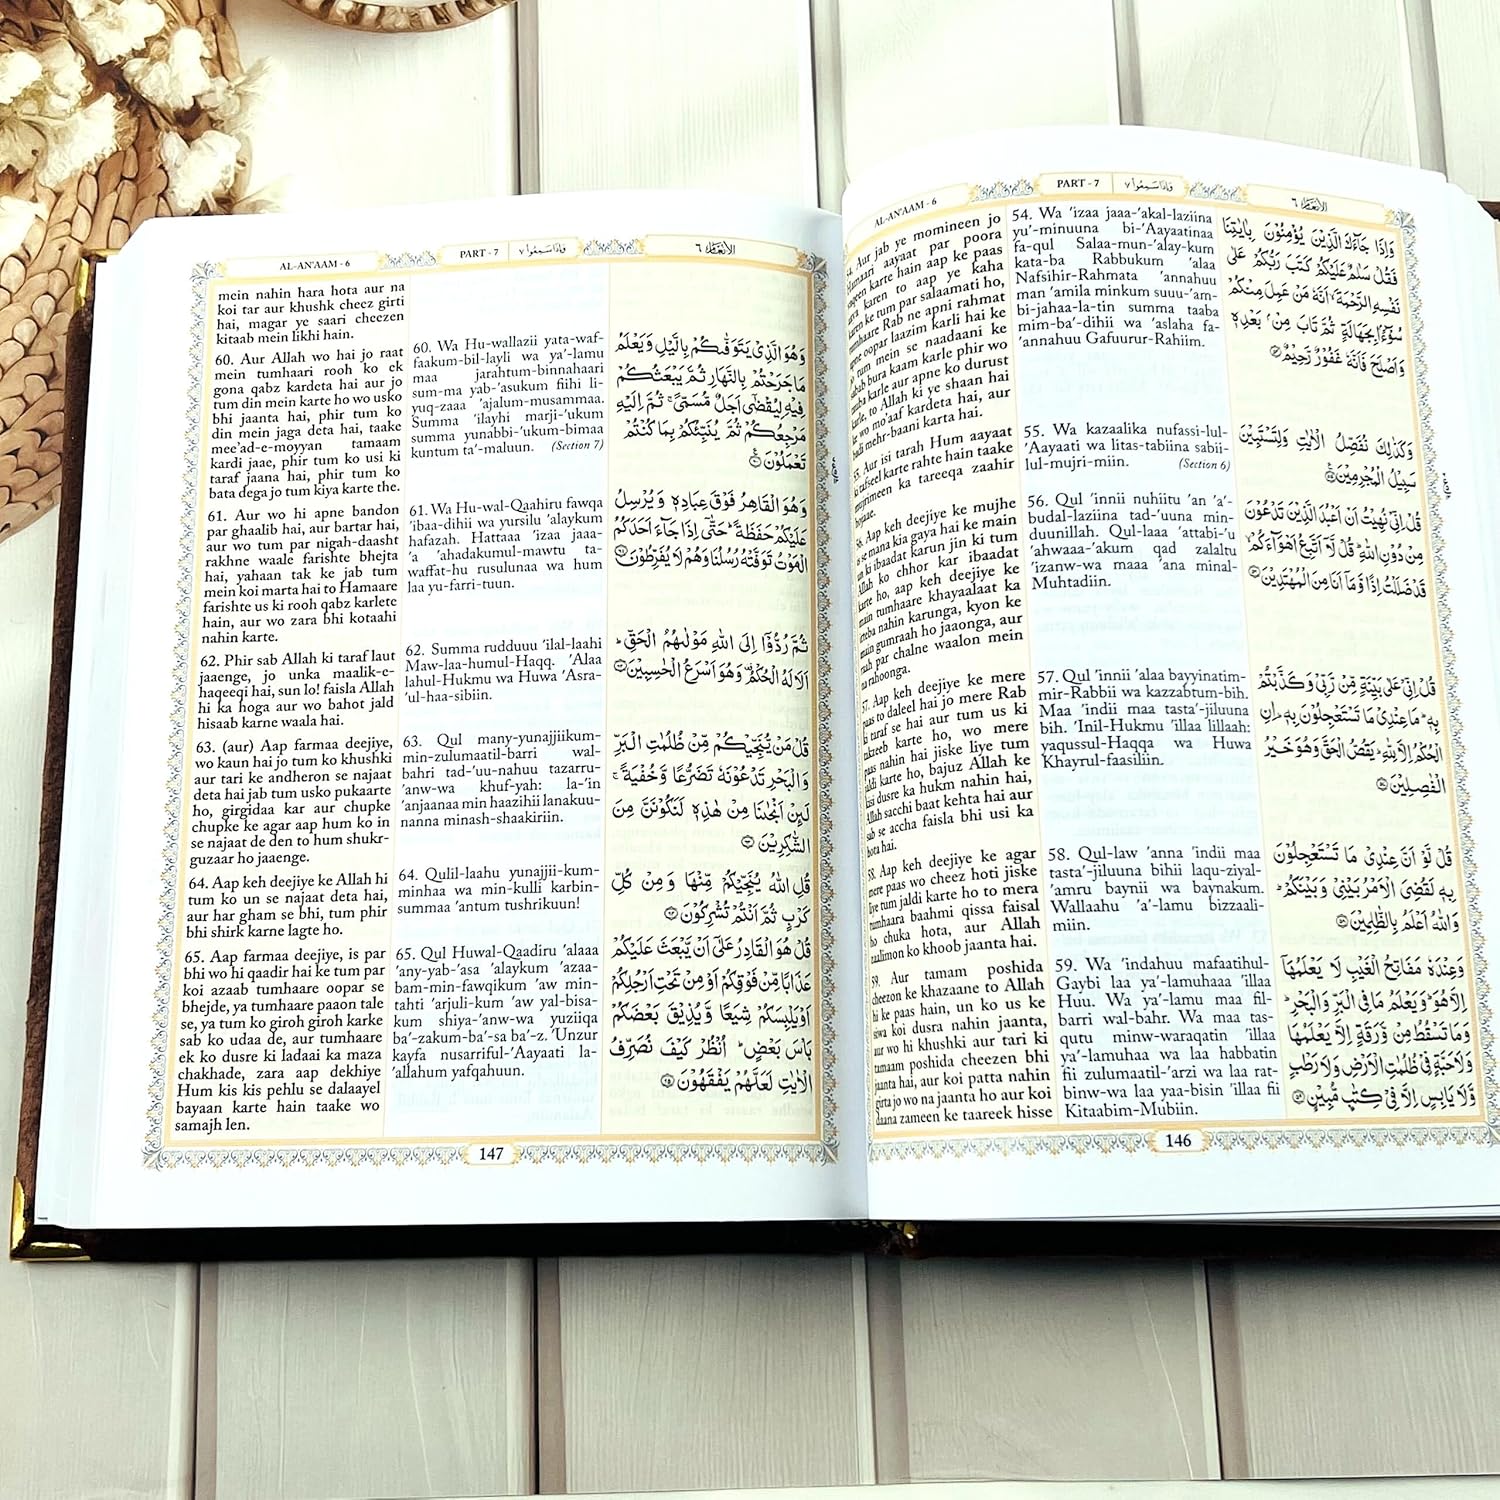 AL-AN'AAM - 6
PART - 7
وَاِذَاسَمِعُوْا ٧
الأنعام ٦
وَاِذَا جَآءَكَ الَّذِيْنَ يُؤْمِنُوْنَ بِاٰيٰتِنَا
فَقُلْ سَلٰمٌ عَلَيْكُمْ كَتَبَ رَبُّكُمْ عَلٰى
نَفْسِهِ الرَّحْمَةَ ۙ اَنَّهٗ مَنْ عَمِلَ مِنْكُمْ
سُوْٓءًۢا بِجَهَالَةٍ ثُمَّ تَابَ مِنْۢ بَعْدِهٖ
وَاَصْلَحَ فَاَنَّهٗ غَفُوْرٌ رَّحِيْمٌ ۝٥٤
وَكَذٰلِكَ نُفَصِّلُ الْاٰيٰتِ وَلِتَسْتَبِيْنَ
سَبِيْلُ الْمُجْرِمِيْنَ ۝٥٥
قُلْ اِنِّيْ نُهِيْتُ اَنْ اَعْبُدَ الَّذِيْنَ تَدْعُوْنَ
مِنْ دُوْنِ اللّٰهِ ؕ قُلْ لَّآ اَتَّبِعُ اَهْوَآءَكُمْ ۙ
قَدْ ضَلَلْتُ اِذًا وَّمَآ اَنَا مِنَ الْمُهْتَدِيْنَ ۝٥٦
قُلْ اِنِّيْ عَلٰى بَيِّنَةٍ مِّنْ رَّبِّيْ وَكَذَّبْتُمْ
بِهٖ ؕ مَا عِنْدِيْ مَا تَسْتَعْجِلُوْنَ بِهٖ ؕ اِنِ
الْحُكْمُ اِلَّا لِلّٰهِ ؕ يَقُصُّ الْحَقَّ وَهُوَ خَيْرُ
الْفٰصِلِيْنَ ۝٥٧
قُلْ لَّوْ اَنَّ عِنْدِيْ مَا تَسْتَعْجِلُوْنَ
بِهٖ لَقُضِيَ الْاَمْرُ بَيْنِيْ وَبَيْنَكُمْ ؕ
وَاللّٰهُ اَعْلَمُ بِالظّٰلِمِيْنَ ۝٥٨
وَعِنْدَهٗ مَفَاتِحُ الْغَيْبِ لَا يَعْلَمُهَآ
اِلَّا هُوَ ؕ وَيَعْلَمُ مَا فِي الْبَرِّ وَالْبَحْرِ ؕ
وَمَا تَسْقُطُ مِنْ وَّرَقَةٍ اِلَّا يَعْلَمُهَا
وَلَا حَبَّةٍ فِيْ ظُلُمٰتِ الْاَرْضِ وَلَا رَطْبٍ
وَّلَا يَابِسٍ اِلَّا فِيْ كِتٰبٍ مُّبِيْنٍ ۝٥٩
54. Wa 'izaa jaaa-'akal-laziina
yu'-minuuna bi-'Aayaatinaa
fa-qul Salaa-mun-'alay-kum
kata-ba Rabbukum 'alaa
Nafsihir-Rahmata 'annahuu
man 'amila minkum suuu-'am-
bi-jahaa-la-tin summa taaba
mim-ba'-dihii wa 'aslaha fa-
'annahuu Gafuurur-Rahiim.
55. Wa kazaalika nufassi-lul-
'Aayaati wa litas-tabiina sabii-
lul-mujri-miin. (Section 6)
56. Qul 'innii nuhiitu 'an 'a'-
budal-laziina tad-'uuna min-
duunillah. Qul-laaa 'attabi-'u
'ahwaaa-'akum qad zalaltu
'izanw-wa maaa 'ana minal-
Muhtadiin.
57. Qul 'innii 'alaa bayyinatim-
mir-Rabbii wa kazzabtum-bih.
Maa 'indii maa tasta'-jiluuna
bih. 'Inil-Hukmu 'illaa lillaah:
yaqussul-Haqqa wa Huwa
Khayrul-faasiliin.
58. Qul-law 'anna 'indii maa
tasta'-jiluuna bihii laqu-ziyal-
'amru baynii wa baynakum.
Wallaahu 'a'-lamu bizzaali-
miin.
59. Wa 'indahuu mafaatihul-
Gaybi laa ya'-lamuhaaa 'illaa
Huu. Wa ya'-lamu maa fil-
barri wal-bahr. Wa maa tas-
qutu minw-waraqatin 'illaa
ya'-lamuhaa wa laa habbatin
fii zulumaatil-'arzi wa laa rat-
binw-wa laa yaa-bisin 'illaa fii
Kitaabim-Mubiin.
Aur jab ye momineen jo
Hamaari aayaat par poora
karte hain aap ke paas
karen to aap ye kaha
karen ke tum par salaamati ho,
tumhaare Rab ne apni rahmat
apne oopar laazim karli hai ke
jo tum mein se naadaani ke
sabab bura kaam karle phir wo
tauba karle aur apne ko durust
karle, to Allah ki ye shaan hai
ke wo mo'aaf kardeta hai, aur
badi mehr-baani karta hai.
55. Aur isi tarah Hum aayaat
ki tafseel karte rahte hain taake
mujrimeen ka tareeqa zaahir
hojaae.
56. Aap keh deejiye ke mujhe
is se mana kia gaya hai ke main
un ki ibaadat karun jin ki tum
Allah ko chhor kar ibaadat
karte ho, aap keh deejiye ke
main tumhaare khayaalaat ka
itteba nahin karunga, kyon ke
main gumraah ho jaaonga, aur
raah par chalne waalon mein
na rahoonga.
57. Aap keh deejiye ke mere
paas to daleel hai jo mere Rab
ki taraf se hai aur tum us ki
takzeeb karte ho, wo mere
paas nahin hai jiske liye tum
jaldi karte ho, bajuz Allah ke
kisi dusre ka hukm nahin hai,
Allah sacchi baat kehta hai aur
sab se accha faisla bhi usi ka
hota hai.
58. Aap keh deejiye ke agar
mere paas wo cheez hoti jiske
liye tum jaldi karte ho to mera
tumhaara baahmi qissa faisal
ho chuka hota, aur Allah
zaalimon ko khoob jaanta hai.
59. Aur tamam poshida
cheezon ke khazaane to Allah
hi ke paas hain, un ko us ke
siwa koi dusra nahin jaanta,
aur wo hi khushki aur tari ki
tamaam poshida cheezen bhi
jaanta hai, aur koi patta nahin
girta jo wo na jaanta ho aur koi
daana zameen ke taareek hisse
146
AL-AN'AAM - 6
PART - 7
وَاِذَاسَمِعُوْا ٧
الأنعام ٦
وَهُوَ الَّذِيْ يَتَوَفّٰىكُمْ بِالَّيْلِ وَيَعْلَمُ
مَا جَرَحْتُمْ بِالنَّهَارِ ثُمَّ يَبْعَثُكُمْ
فِيْهِ لِيُقْضٰٓى اَجَلٌ مُّسَمًّى ۚ ثُمَّ اِلَيْهِ
مَرْجِعُكُمْ ثُمَّ يُنَبِّئُكُمْ بِمَا كُنْتُمْ
تَعْمَلُوْنَ ۝٦٠
وَهُوَ الْقَاهِرُ فَوْقَ عِبَادِهٖ وَيُرْسِلُ
عَلَيْكُمْ حَفَظَةً ؕ حَتّٰٓى اِذَا جَآءَ اَحَدَكُمُ
الْمَوْتُ تَوَفَّتْهُ رُسُلُنَا وَهُمْ لَا يُفَرِّطُوْنَ ۝٦١
ثُمَّ رُدُّوْٓا اِلَى اللّٰهِ مَوْلٰىهُمُ الْحَقِّ ؕ
اَلَا لَهُ الْحُكْمُ ۟ وَهُوَ اَسْرَعُ الْحٰسِبِيْنَ ۝٦٢
قُلْ مَنْ يُّنَجِّيْكُمْ مِّنْ ظُلُمٰتِ الْبَرِّ
وَالْبَحْرِ تَدْعُوْنَهٗ تَضَرُّعًا وَّخُفْيَةً ۚ
لَئِنْ اَنْجٰىنَا مِنْ هٰذِهٖ لَنَكُوْنَنَّ مِنَ
الشّٰكِرِيْنَ ۝٦٣
قُلِ اللّٰهُ يُنَجِّيْكُمْ مِّنْهَا وَمِنْ كُلِّ
كَرْبٍ ثُمَّ اَنْتُمْ تُشْرِكُوْنَ ۝٦٤
قُلْ هُوَ الْقَادِرُ عَلٰٓى اَنْ يَّبْعَثَ عَلَيْكُمْ
عَذَابًا مِّنْ فَوْقِكُمْ اَوْ مِنْ تَحْتِ اَرْجُلِكُمْ
اَوْ يَلْبِسَكُمْ شِيَعًا وَّيُذِيْقَ بَعْضَكُمْ
بَاْسَ بَعْضٍ ؕ اُنْظُرْ كَيْفَ نُصَرِّفُ
الْاٰيٰتِ لَعَلَّهُمْ يَفْقَهُوْنَ ۝٦٥
60. Wa Hu-wallazii yata-waf-
faakum-bil-layli wa ya'-lamu
maa jarahtum-binnahaari
sum-ma yab-'asukum fiihi li-
yuq-zaaa 'ajalum-musammaa.
Summa 'ilayhi marji-'ukum
summa yunabbi-'ukum-bimaa
kuntum ta'-maluun. (Section 7)
61. Wa Hu-wal-Qaahiru fawqa
'ibaa-dihii wa yursilu 'alaykum
hafazah. Hattaaa 'izaa jaaa-
'a 'ahadakumul-mawtu ta-
waffat-hu rusulunaa wa hum
laa yu-farri-tuun.
62. Summa rudduuu 'ilal-laahi
Maw-laa-humul-Haqq. 'Alaa
lahul-Hukmu wa Huwa 'Asra-
'ul-haa-sibiin.
63. Qul many-yunajjiikum-
min-zulumaatil-barri wal-
bahri tad-'uu-nahuu tazarru-
'anw-wa khuf-yah: la-'in
'anjaanaa min haazihii lanakuu-
nanna minash-shaakiriin.
64. Qulil-laahu yunajjii-kum-
minhaa wa min-kulli karbin-
summaa 'antum tushrikuun!
65. Qul Huwal-Qaadiru 'alaaa
'any-yab-'asa 'alaykum 'azaa-
bam-min-fawqikum 'aw min-
tahti 'arjuli-kum 'aw yal-bisa-
kum shiya-'anw-wa yuziiqa
ba'-zakum-ba'-sa ba'-z. 'Unzur
kayfa nusarriful-'Aayaati la-
'allahum yafqahuun.
mein nahin hara hota aur na
koi tar aur khushk cheez girti
hai, magar ye saari cheezen
kitaab mein likhi hain.
60. Aur Allah wo hai jo raat
mein tumhaari rooh ko ek
gona qabz kardeta hai aur jo
tum din mein karte ho wo usko
bhi jaanta hai, phir tum ko
din mein jaga deta hai, taake
mee'ad-e-moyyan tamaam
kardi jaae, phir tum ko usi ki
taraf jaana hai, phir tum ko
bata dega jo tum kiya karte the.
61. Aur wo hi apne bandon
par ghaalib hai, aur bartar hai,
aur wo tum par nigah-daasht
rakhne waale farishte bhejta
hai, yahaan tak ke jab tum
mein koi marta hai to Hamaare
farishte us ki rooh qabz karlete
hain, aur wo zara bhi kotaahi
nahin karte.
62. Phir sab Allah ki taraf laut
jaaenge, jo unka maalik-e-
haqeeqi hai, sun lo! faisla Allah
hi ka hoga aur wo bahot jald
hisaab karne waala hai.
63. (aur) Aap farmaa deejiye,
wo kaun hai jo tum ko khushki
aur tari ke andheron se najaat
deta hai jab tum usko pukaarte
ho, girgidaa kar aur chupke
chupke ke agar aap hum ko in
se najaat de den to hum shukr-
guzaar ho jaaenge.
64. Aap keh deejiye ke Allah hi
tum ko un se najaat deta hai,
aur har gham se bhi, tum phir
bhi shirk karne lagte ho.
65. Aap farmaa deejiye, is par
bhi wo hi qaadir hai ke tum par
koi azaab tumhaare oopar se
bhejde, ya tumhaare paaon tale
se, ya tum ko giroh giroh karke
sab ko udaa de, aur tumhaare
ek ko dusre ki ladaai ka maza
chakhade, zara aap dekhiye
Hum kis kis pehlu se dalaayel
bayaan karte hain taake wo
samajh len.
147